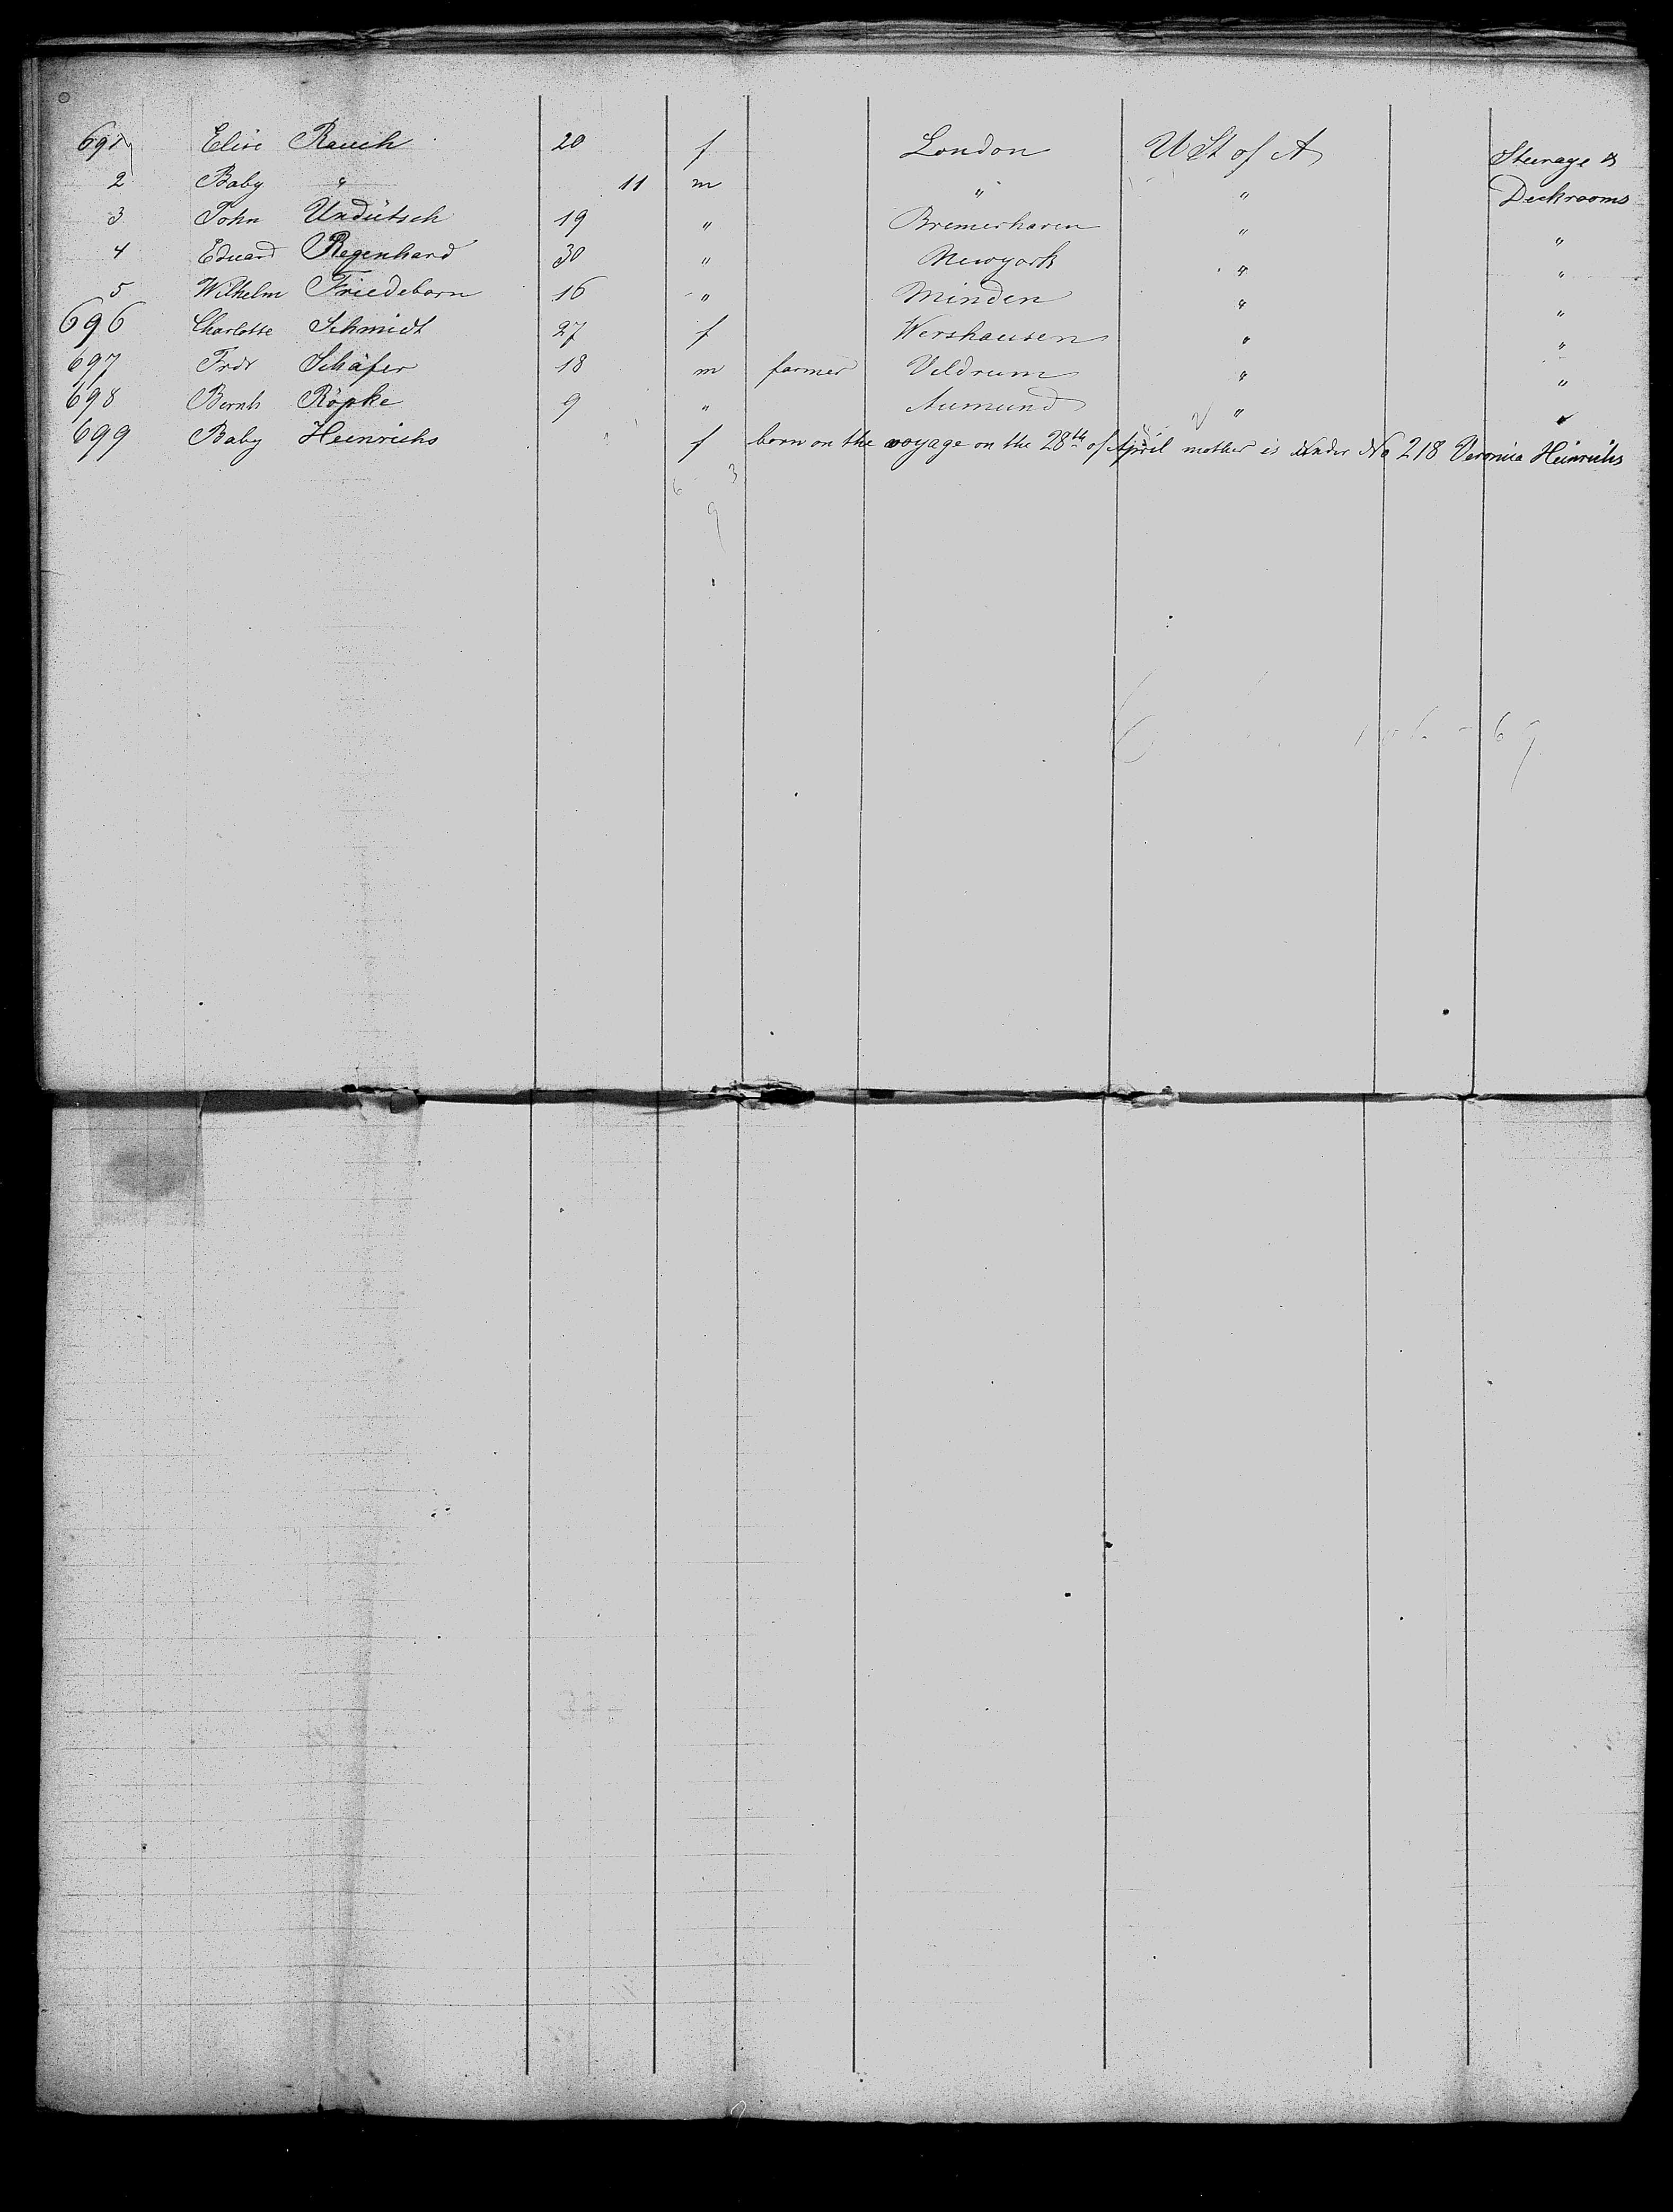 691 Elise Rauch 20 f London U St of A Steerage &
2 Baby " 11 m " " Deckrooms
3 John Undütsch 19 " Bremerhaven " "
4 Eduard Regenhard 30 " Newyork " "
5 Wilhelm Friedeborn 16 " Minden " "
696 Charlotte Schmidt 27 f Wershausen " "
697 Frdr Schäfer 18 m farmer Veldrum " "
698 Bernh Röpke 9 " Aumund " "
699 Baby Heinrichs f born on the voyage on the 28th of April mother is under No 218 Veronica Heinrichs